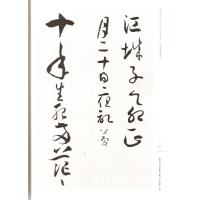 江城子乙卯正
月二十日夜記夢
十年生死两茫〻